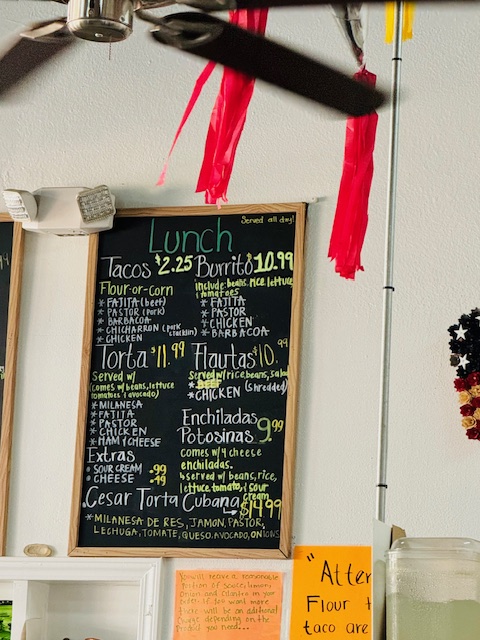 Served all day!
Lunch
Tacos $2.25
Flour-or-corn
* FATITA (beef)
* PASTOR (Pork)
* BARBACOA
* CHICHARRON (pork cracklin)
* CHICKEN
Burrito $10.99
include: beans, rice, lettuce, tomatoes
* FATITA
* PASTOR
* CHICKEN
* BARBACOA
Torta $11.99
Served w/
comes w/ beans, lettuce
tomatoes / avocado)
* MILANESA
* FATITA
* PASTOR
* CHICKEN
* HAM Y CHEESE
Flautas $10.99
Served w/ rice, beans, salad
* BEEF
* CHICKEN (shredded)
Enchiladas
Potosinas 9.99
comes w/ 4 cheese
enchiladas.
served w/ beans, rice,
lettuce, tomato, / sour
cream
Extras
* SOUR CREAM .99
* CHEESE .49
Cesar Torta Cubana
$14.99
* MILANESA DE RES, JAMON, PASTOR,
LECHUGA, TOMATE, QUESO, AVOCADO, ONIONS
You will receive a reasonable
portion of sauce, limes,
onion and cilantro in your
order. If you want more
there will be an additional
charge depending on the
product you need...
" Atten
Flour t
taco are